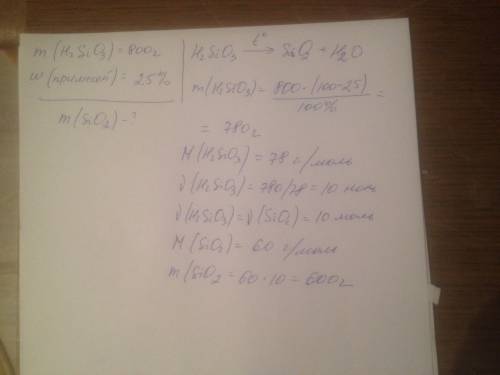 m(H₂SiO₃) = 800г
w(примесей) = 25%
m(SiO₂) - ?
H₂SiO₃ —t°→ SiO₂ + H₂O
m(H₂SiO₃) = 800·(100-25) / 100% =
= 780г
M(H₂SiO₃) = 78 г/моль
ν(H₂SiO₃) = 780/78 = 10 моль
ν(H₂SiO₃) = ν(SiO₂) = 10 моль
M(SiO₂) = 60 г/моль
m(SiO₂ = 60·10 = 600г